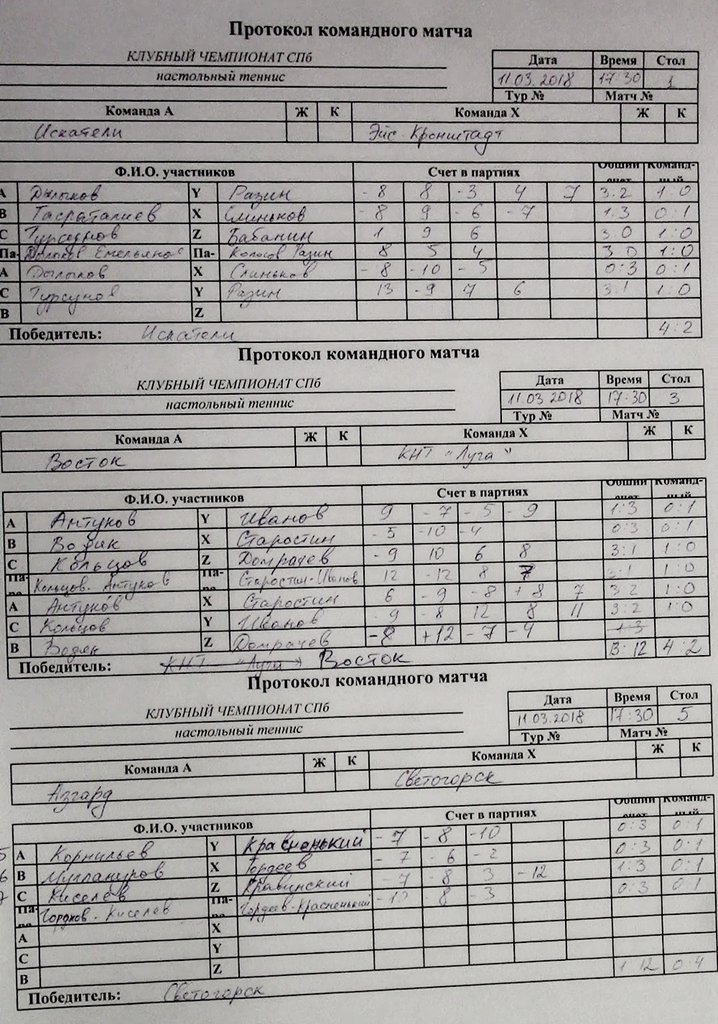 Протокол командного матча
КЛУБНЫЙ ЧЕМПИОНАТ СПб
настольный теннис
Дата Время Стол
11.03.2018 17:30 1
Тур № Матч №
Команда А Ж К Команда Х Ж К
Искатели Эйс-Кронштадт
Ф.И.О. участников Счет в партиях Общий счет Команд-ный
А Дылыков Y Разин -8 8 -3 4 7 3:2 1:0
В X Слиньков -8 9 -6 -7 1:3 0:1
С Z Бабанин 1 9 6 3:0 1:0
Па- Дылыков Емельянов Па- Колосов Разин 8 5 4 3:0 1:0
А Дылыков X Слиньков -8 -10 -5 0:3 0:1
С Турсунов Y Разин 13 -9 7 6 3:1 1:0
В Z
Победитель: Искатели 4:2
Протокол командного матча
КЛУБНЫЙ ЧЕМПИОНАТ СПб
настольный теннис
Дата Время Стол
11.03.2018 17:30 3
Тур № Матч №
Команда А Ж К Команда Х Ж К
Восток КНТ "Луга"
Ф.И.О. участников Счет в партиях Общий счет Команд-ный
А Антуков Y Иванов 9 -7 -5 -9 1:3 0:1
В Водяк X Старостин -5 -10 -4 0:3 0:1
С Кольцов Z Домрачев -9 10 6 8 3:1 1:0
Па-ре Кольцов-Антуков Па-ре Старостин-Иванов 12 -12 8 7 3:1 1:0
А Антуков X Старостин 6 -9 -8 +8 7 3:2 1:0
С Кольцов Y Иванов -9 -8 12 8 11 3:2 1:0
В Водяк Z Домрачев -8 +12 -7 -4 1:3
Победитель: КНТ "Луга" Восток 13:12 4:2
Протокол командного матча
КЛУБНЫЙ ЧЕМПИОНАТ СПб
настольный теннис
Дата Время Стол
11.03.2018 17:30 5
Тур № Матч №
Команда А Ж К Команда Х Ж К
Азгард Светогорск
Ф.И.О. участников Счет в партиях Общий счет Команд-ный
А Корнильев Y Красненький -7 -8 -10 0:3 0:1
В Муллануров X Гордеев -7 -6 -2 0:3 0:1
С Киселев Z Кравинский -7 -8 3 -12 1:3 0:1
Па-ре Киселев Па-ре Гордеев-Красненький -8 -3 0:3 0:1
А X
С Y
В Z 1:12 0:4
Победитель: Светогорск